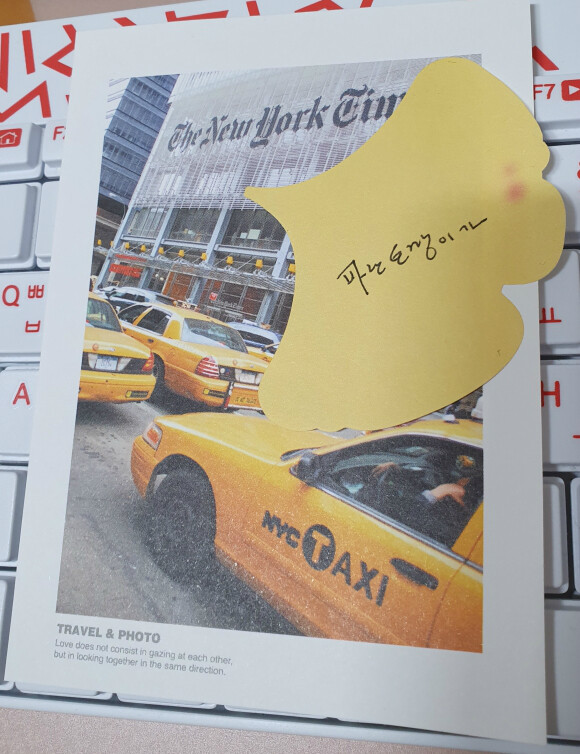 F7
The New York Tim
파란토깽이가
Q ㅃ
ㅂ
A
H
NYC TAXI
TRAVEL & PHOTO
Love does not consist in gazing at each other,
but in looking together in the same direction.